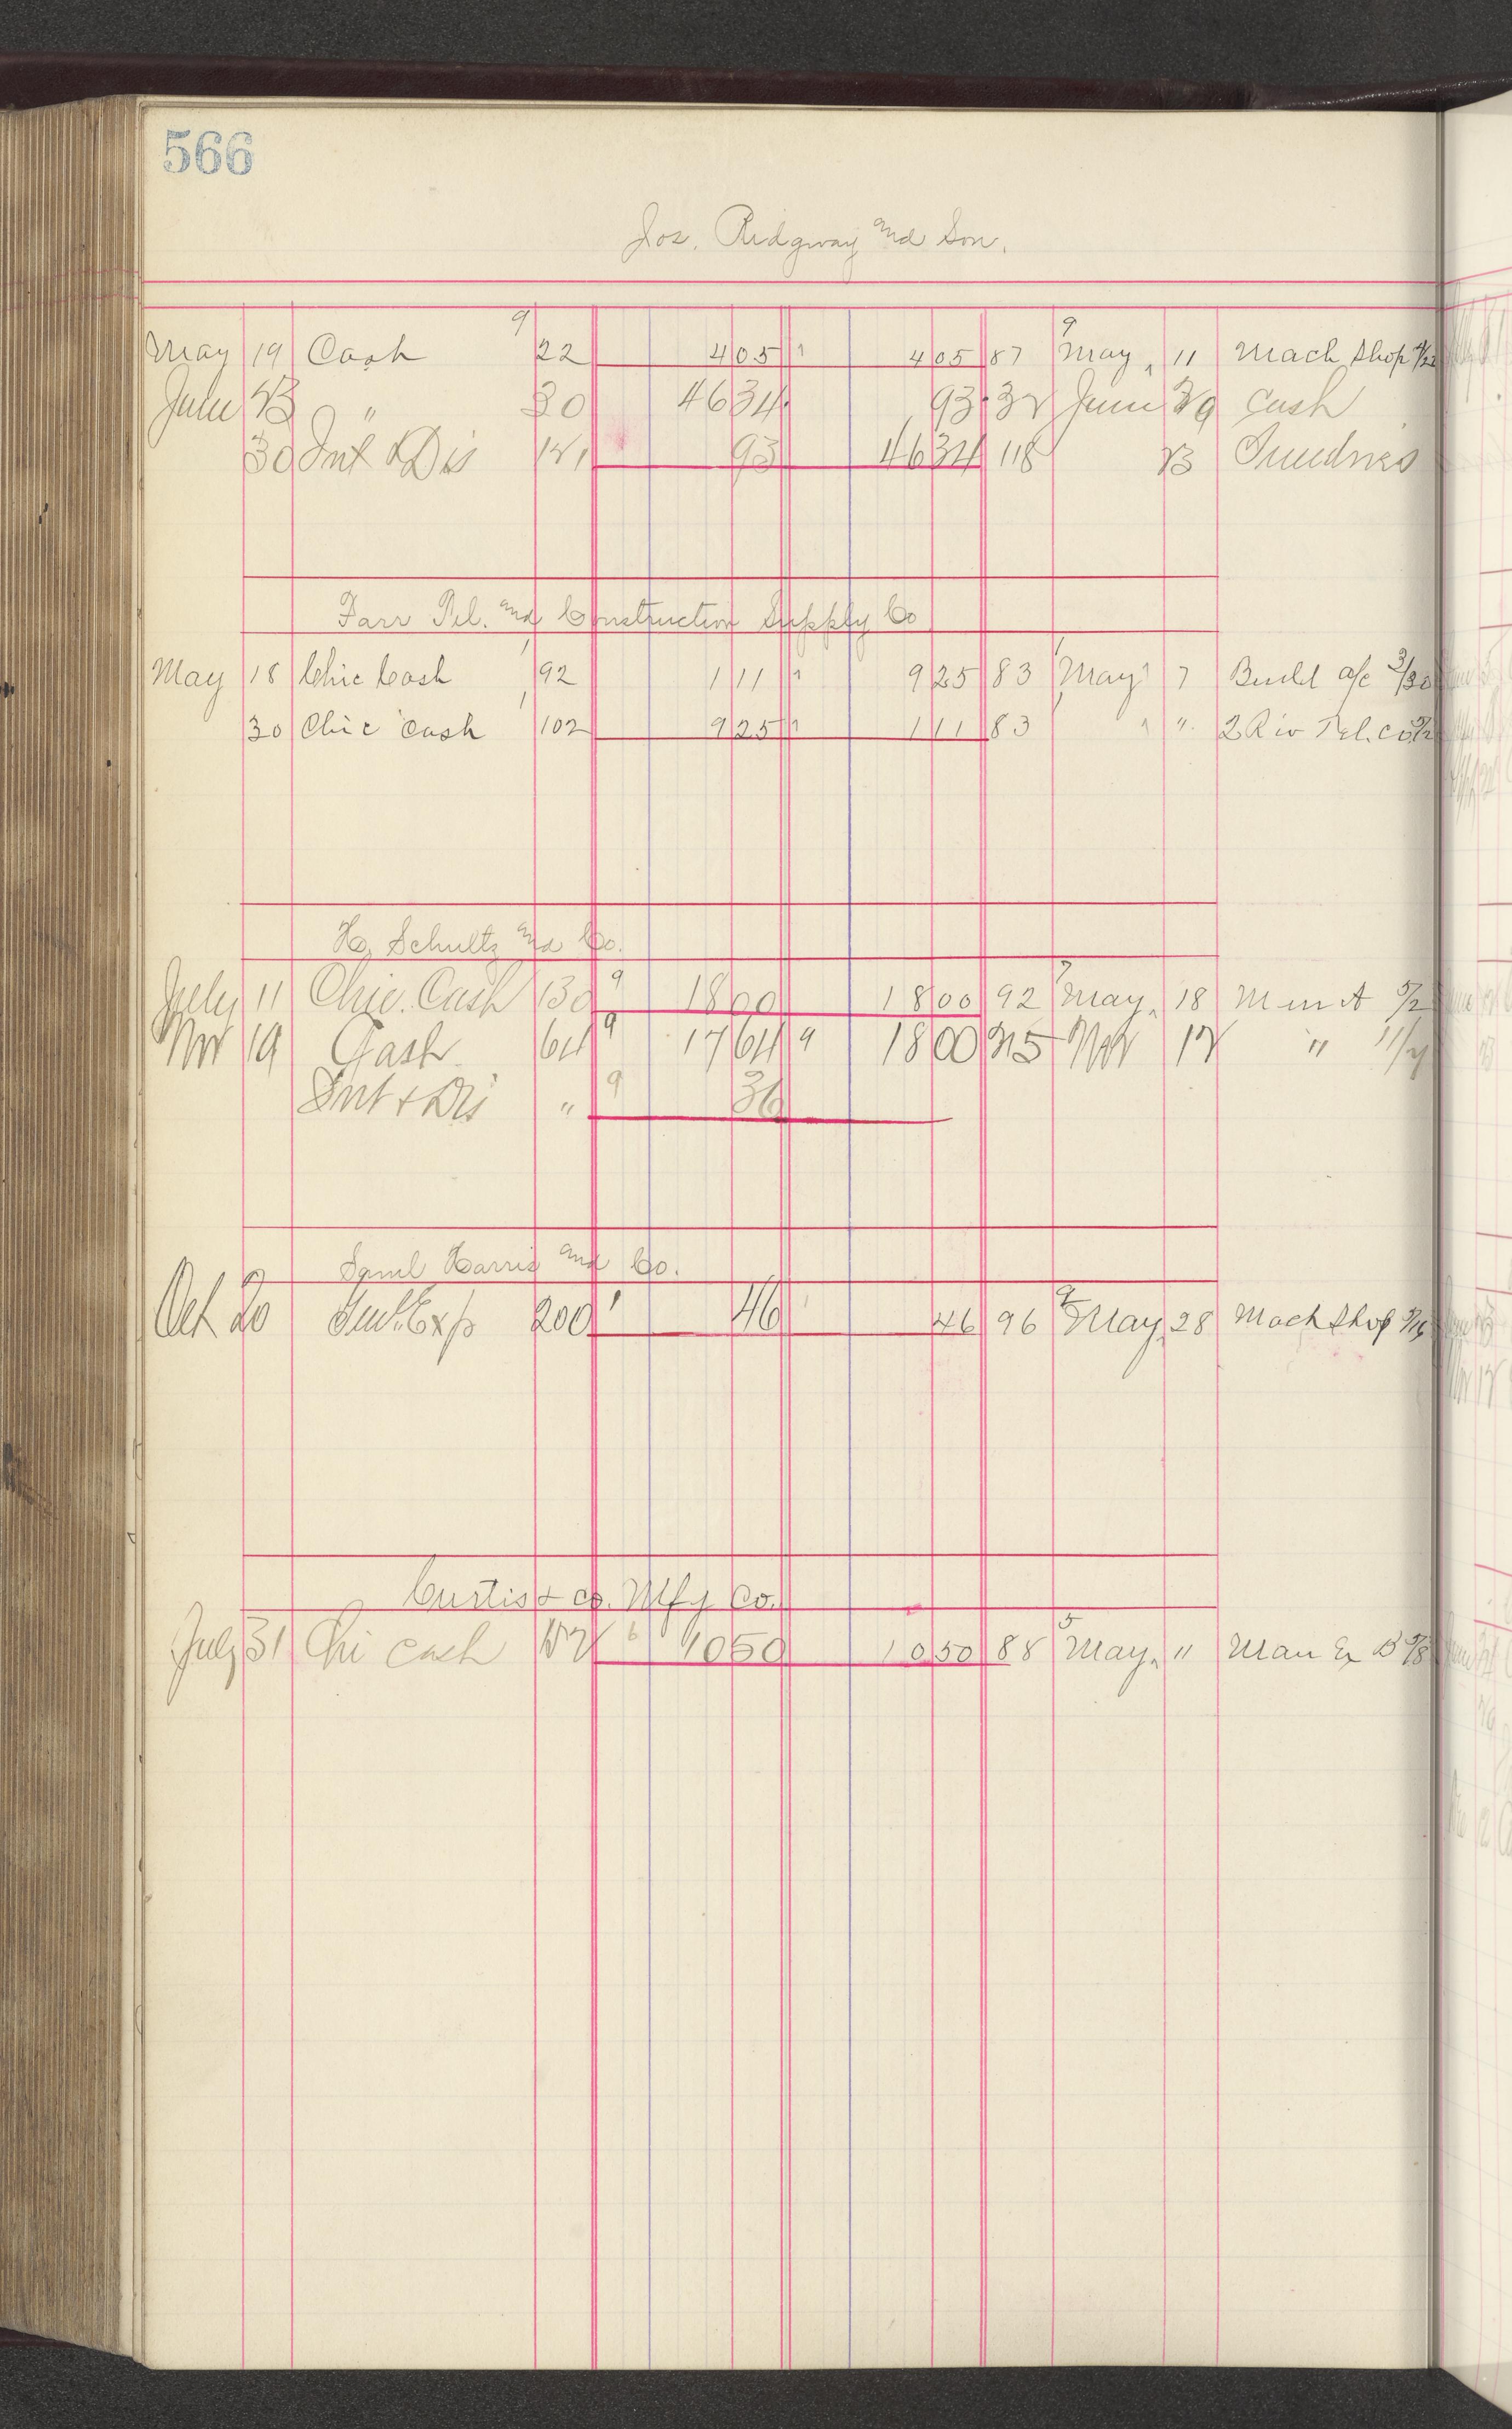 566
Jos. Ridgway and Son.
May 19 Cash 9 22 405 1 405 87 9 May 11 Mach Shop
June 23 " 30 4634 93 32 June 29 Cash
30 Int & Dis 93 4634 118 23 Sundries
Farr Tel. and Construction Supply Co
May 18 Chic Cash 1 92 111 1 925 83 1 May 7 Build a/c 3/30
30 Chic Cash 1 102 925 1 111 83 " " 2 Riv Tel. Co
H. Schultz and Co.
July 11 Chic. Cash 130 9 1800 1800 92 May 18 M m A 5/2
Nov 19 Cash 64 9 1764 9 1800 215 Nov 12 "
Int & Dis " 9 36
Saml Harris and Co.
Oct 20 Genl. Exp 200 1 46 46 96 9 May 28 Mach Shop
Curtis & co. Mfg Co.
July 31 Chi Cash 6 1050 1050 88 5 May 11 Man Ex B